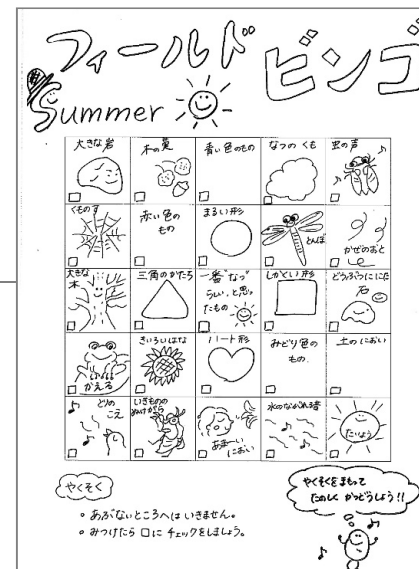 フィールド
ビンゴ
Summer
大きな岩
木の実
青い色のもの
なつのくも
虫の声
くものす
赤い色の
もの
まるい形
とんぼ
かぜのおと
大きな
木
三角のかたち
一番"なつ"
らしい、と思っ
たもの
しかくい形
どうぶつににた
石
かえる
きいろいはな
ハート形
みどり色の
もの
土のにおい
とりの
こえ
いきものの
ぬけがら
あまーい
におい
水のながれる音
たいよう
やくそく
◦ あぶないところへは いきません。
◦ みつけたら □に チェックをしましょう。
やくそくをまもって
たのしく かつどうしよう!!